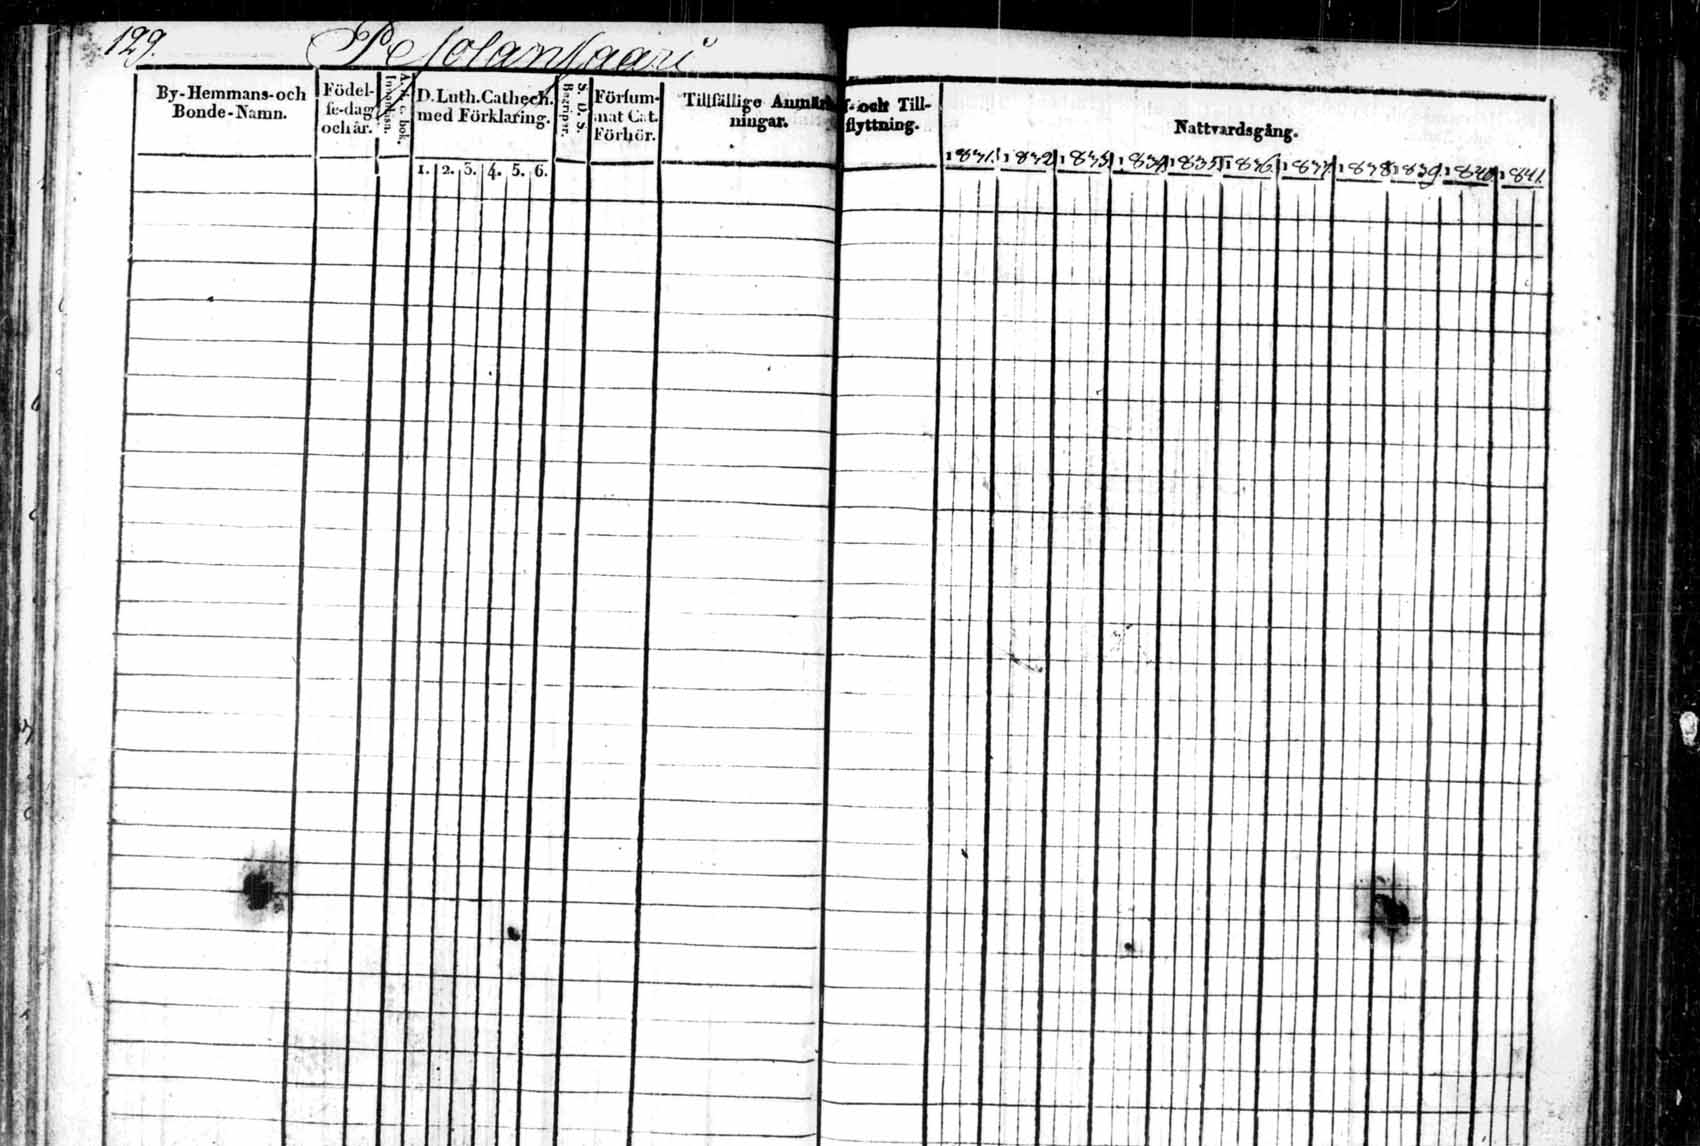 129. Pesolansaari
By-Hemmans-och
Bonde-Namn.
Födel-
se-dag
och år.
D. Luth. Cathech.
med Förklaring.
1. 2. 3. 4. 5. 6.
S. D. S.
Begriper.
Försum-
nat Cat.
Förhör.
Tillfällige Anmärk
ningar.
f- och Till-
flyttning.
Nattvardsgång.
1831. 1832 1833 1834 1835 1836. 1837. 1838 1839 1840 1841.